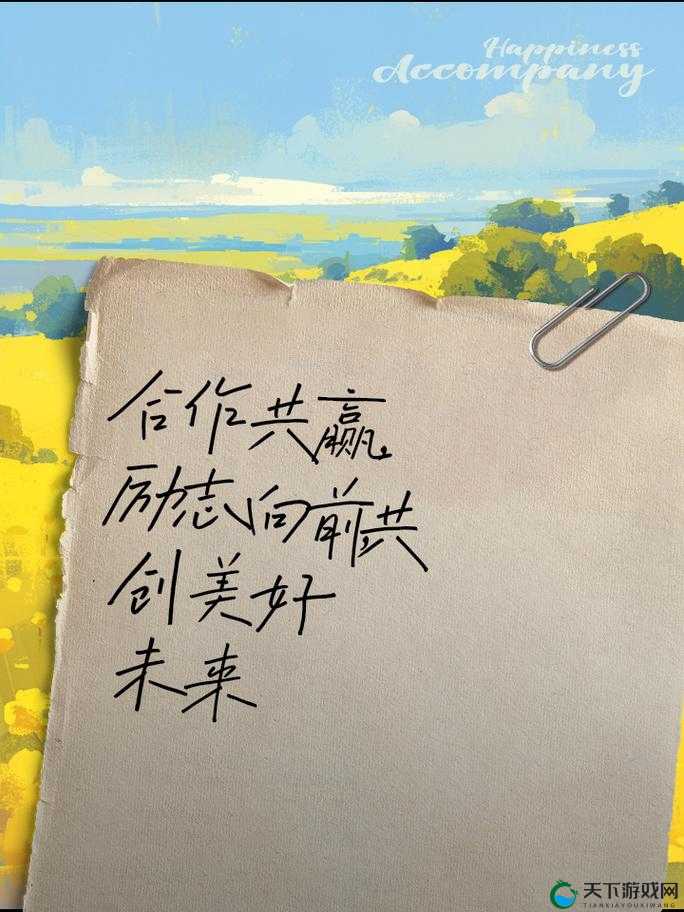 Happiness
Accompany
合作共赢,
励志向前,共
创美好
未来
天下游戏网
TIANXIAYOUXIWANG